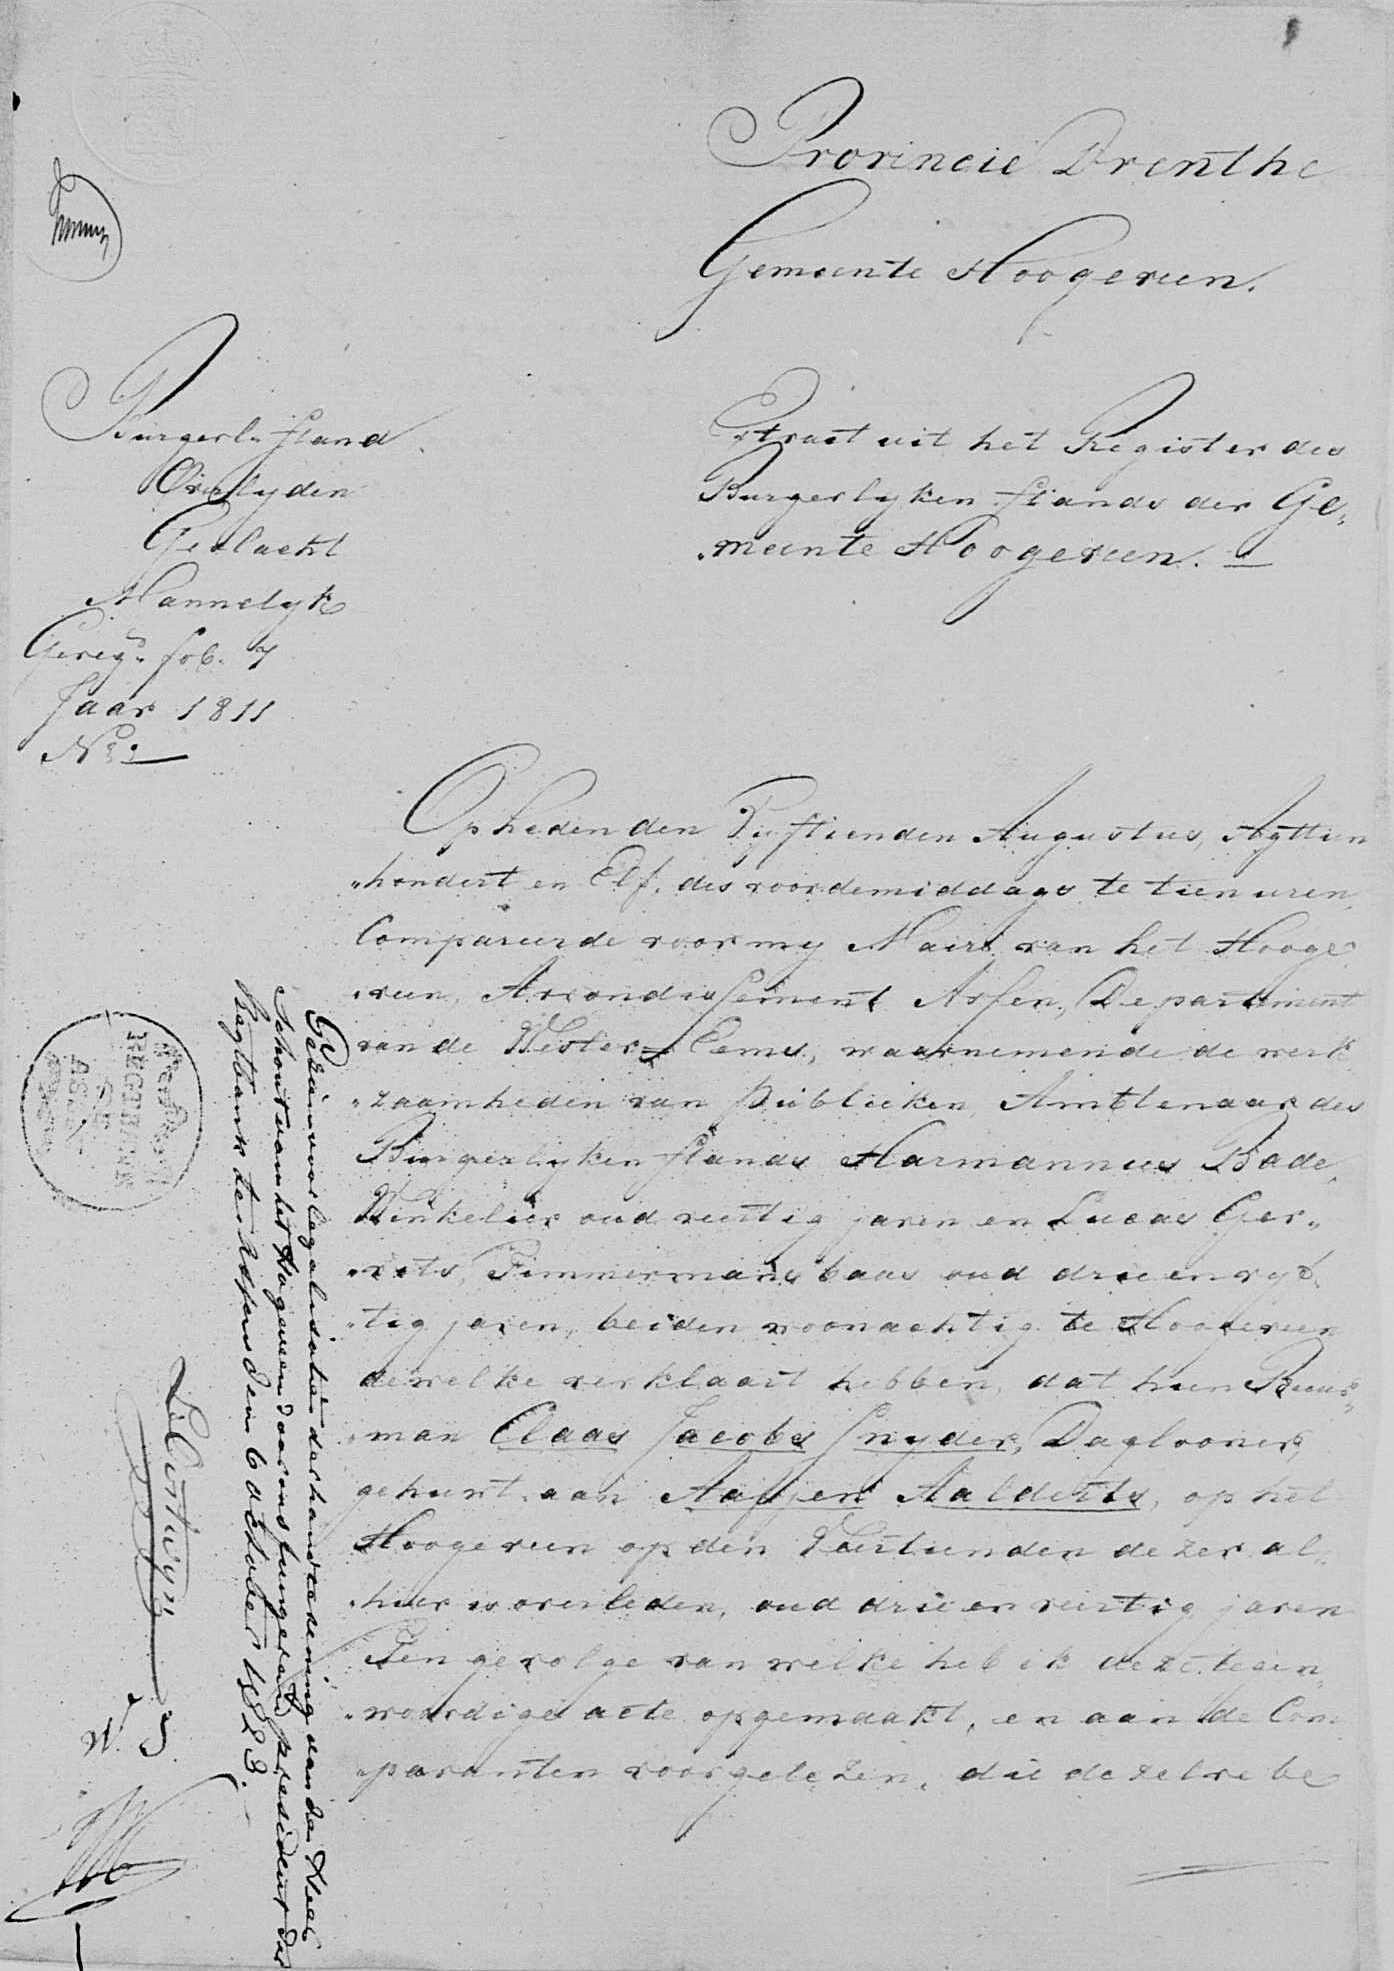 Provincie Drenthe
Gemeente Hoogeveen.
Burgerl. Stand
Overlyden
Geslacht
Mannelyk
Gereg.d fol. 7
Jaar 1811
No. 1
Extract uit het Register des
Burgerlyken Stands der Ge„
„meente Hoogeveen. —
Op heden den Vyftienden Augustus, Agttien
„hondert en Elf, des voordemiddags te tien uren,
Compareerde voor my Maire van het Hooge
„veen, Arrondissement Assen, Departement
van de Wester-Eems, waarnemende de werk
„zaamheden van Publieken Amttenaar des
Burgerlyken Stands Harmannus Bade,
Winkelier oud veertig jaren en Lucas Ger„
„rits, Timmermans baas oud drie en vyf„
„tig jaren, beiden woonachtig te Hoogeveen
dewelke verklaart hebben, dat hun Buur„
„man Claas Jacobs Snyder, Daglooner,
gehuwt aan Aaltjen Aalderts, op het
Hoogeveen op den Veertienden dezer al„
„hier is overleden, oud drie en veertig jaren
Ten gevolge van welke heb ik deze tegen„
„woordige acte opgemaakt, en aan de Com
„paranten voorgelezen, die dezelve be
Gezien voor legalisatie der handtekening van den Heer
Schout van het Hogeveen door ons fungerend president der
Regtbank te Assen den 6 october 1823.
W. S.
REGTBANK
ASSEN